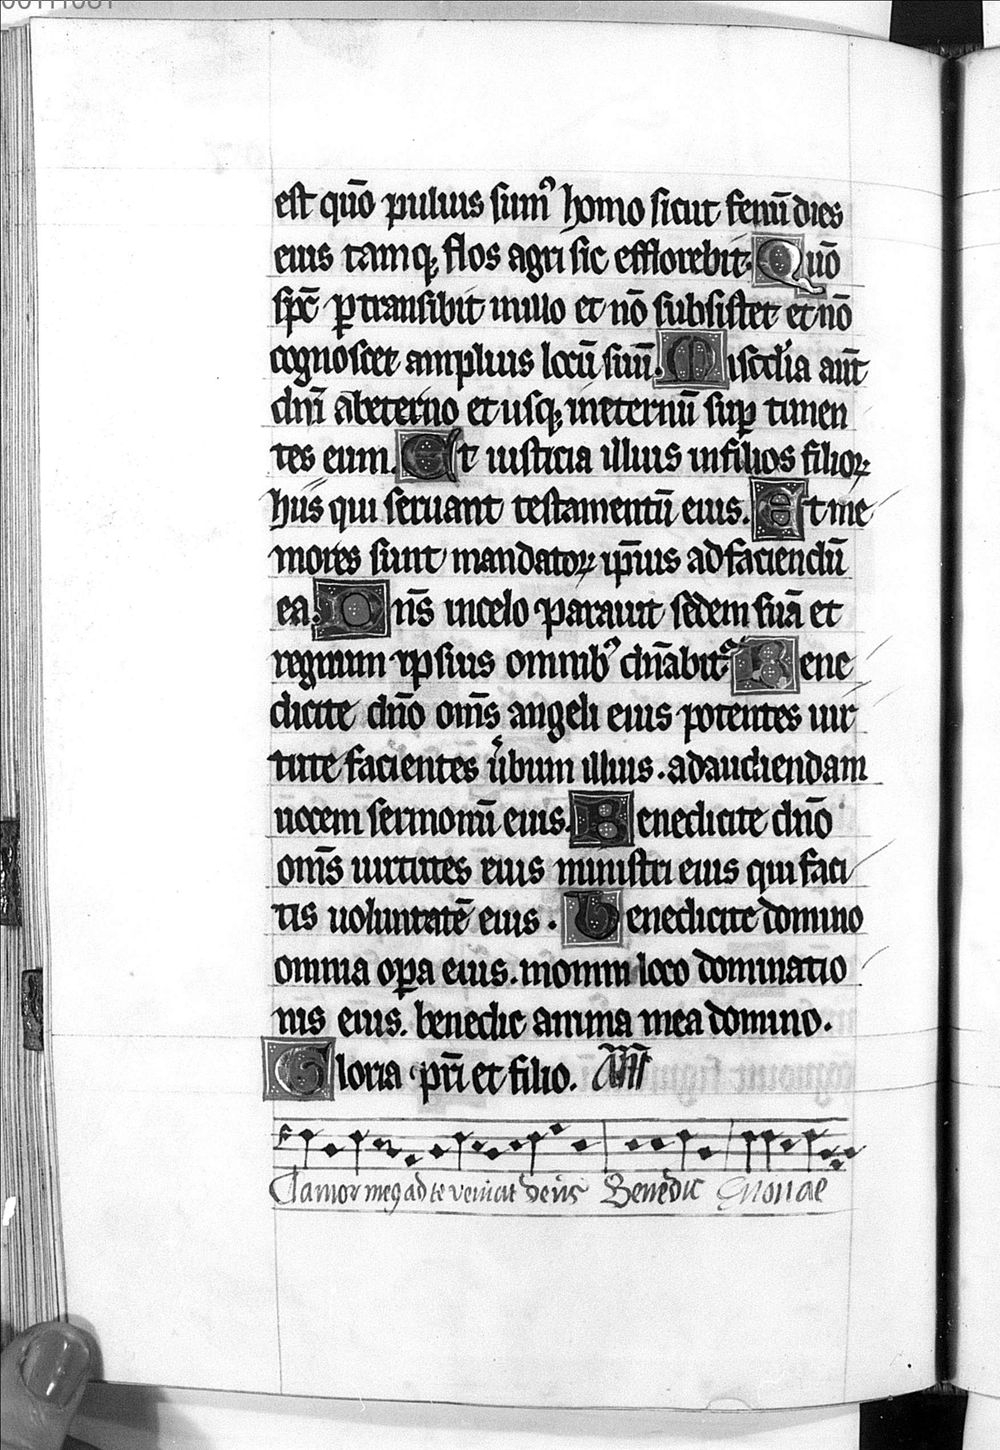 est quō puluis sumꝰ homo sicut fenū dies
eius tamqȝ flos agri sic efflorebit. Quō
sp̄c ꝑtransibit in illo et nō subsistet et nō
cognoscet amplius locū suū. Miscďia aūt
dn̄i ab eterno et usqȝ in eternū suꝑ timen
tes eum. Et iusticia illius in filios filioꝝ
hiis qui seruant testamentū eius. Et me
mores sunt mandatoꝝ ip̄ius ad faciendū
ea. Dn̄s in celo parauit sedem suā et
regnum ipsius omnibꝰ dn̄abitᷣ Bene
dicite dn̄o om̄s angeli eius potentes uir
tute facientes u̾bum illius . ad audiendam
uocem sermonū eius. Benedicite dn̄o
om̄s uirtutes eius ministri eius qui faci
tis uoluntatē eius . Benedicite domino
omnia oꝑa eius . in omni loco dominatio
nis eius. benedic anima mea domino .
Gloria pr̄i et filio. An̄
Clamor meꝯ ad te veniat deus Benedic Enouae